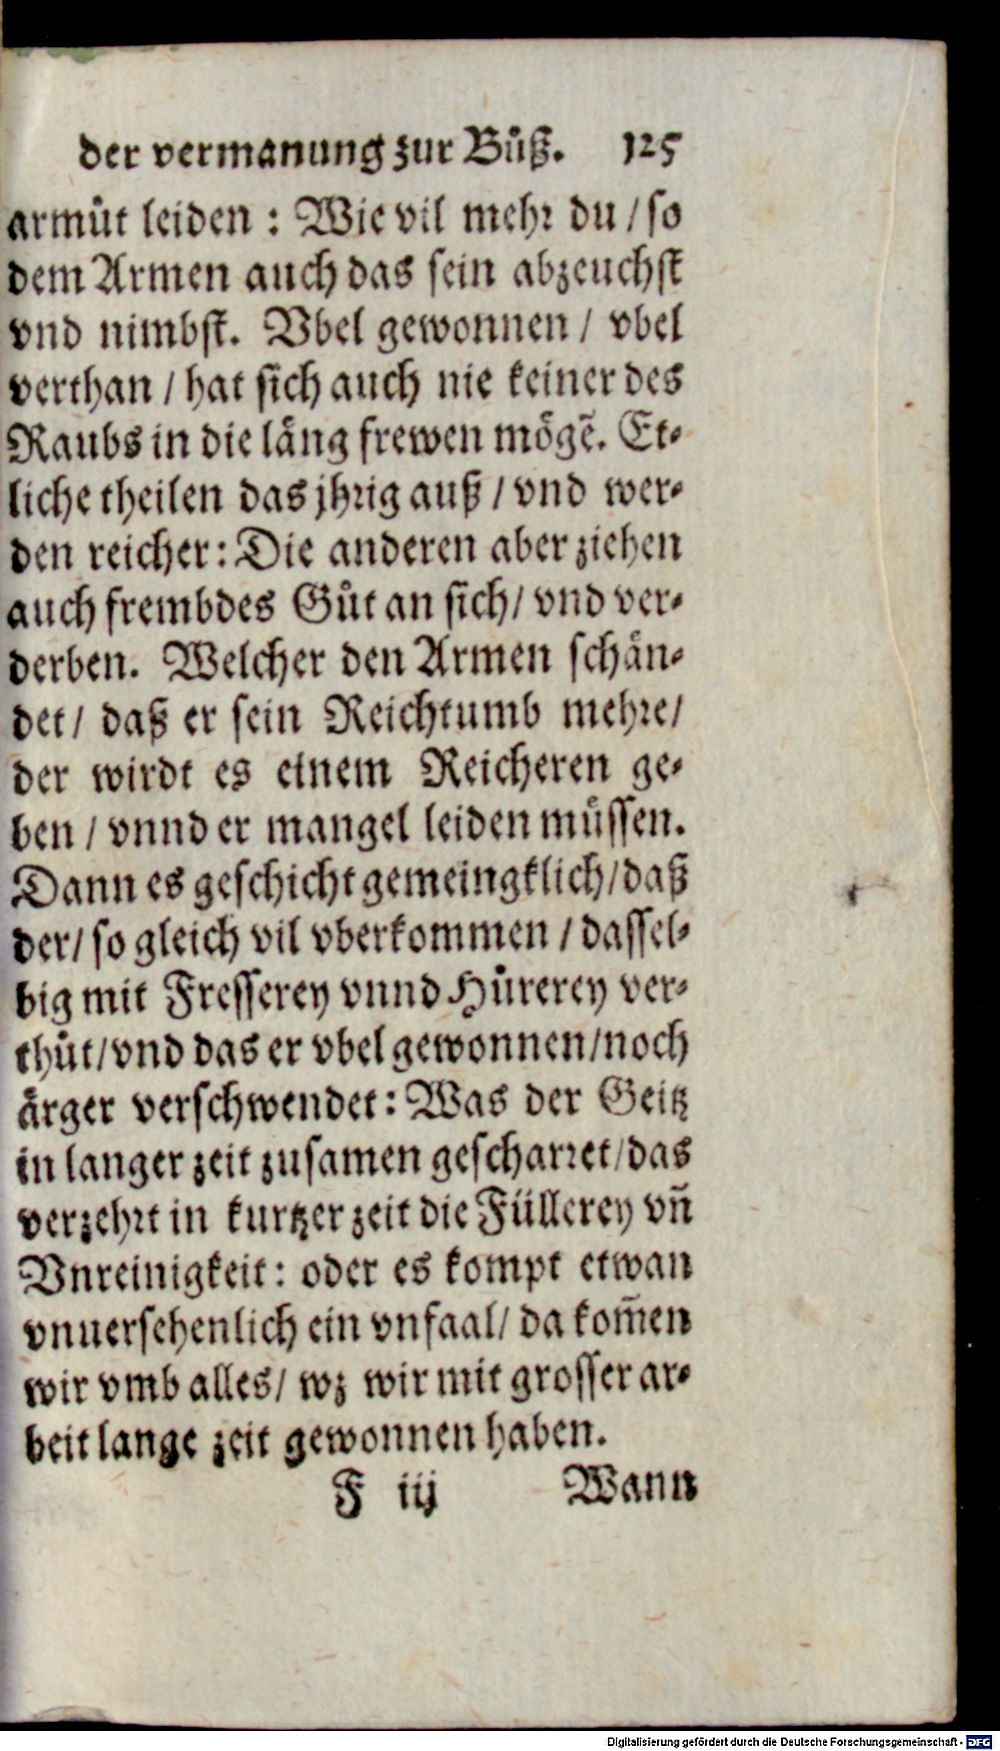 der vermanung zur Bůß. 125
armůt leiden : Wie vil mehr du / so
dem Armen auch das sein abzeuchst
vnd nimbst. Vbel gewonnen / vbel
verthan / hat sich auch nie keiner des
Raubs in die läng frewen mögẽ. Et-
liche theilen das jhrig auß / vnd wer-
den reicher: Die anderen aber ziehen
auch frembdes Gůt an sich/ vnd ver-
derben. Welcher den Armen schän-
det/ daß er sein Reichtumb mehre/
der wirdt es einem Reicheren ge-
ben / vnnd er mangel leiden müssen.
Dann es geschicht gemeingklich/daß
der/ so gleich vil vberkommen / dassel-
big mit Fresserey vnnd Hůrerey ver-
thůt/vnd das er vbel gewonnen/noch
ärger verschwendet: Was der Geitz
in langer zeit zusamen gescharret/das
verzehrt in kurtzer zeit die Füllerey vn̄
Vnreinigkeit: oder es kompt etwan
vnuersehenlich ein vnfaal/ da kom̄en
wir vmb alles/ wz wir mit grosser ar-
beit lange zeit gewonnen haben.
F iij Wann
Digitalisierung gefördert durch die Deutsche Forschungsgemeinschaft - DFG